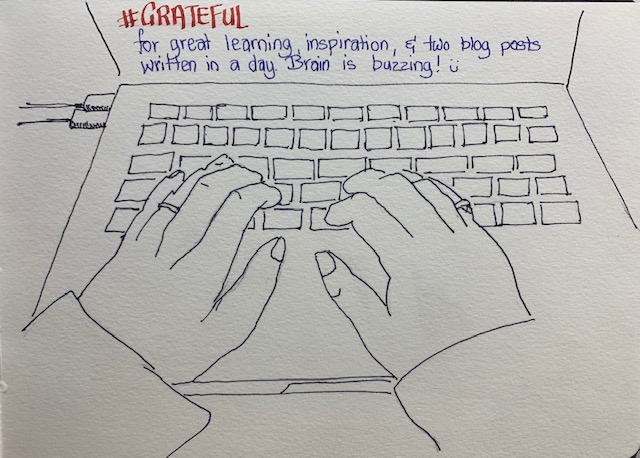 #GRATEFUL
for great learning, inspiration, & two blog posts
written in a day. Brain is buzzing! ü